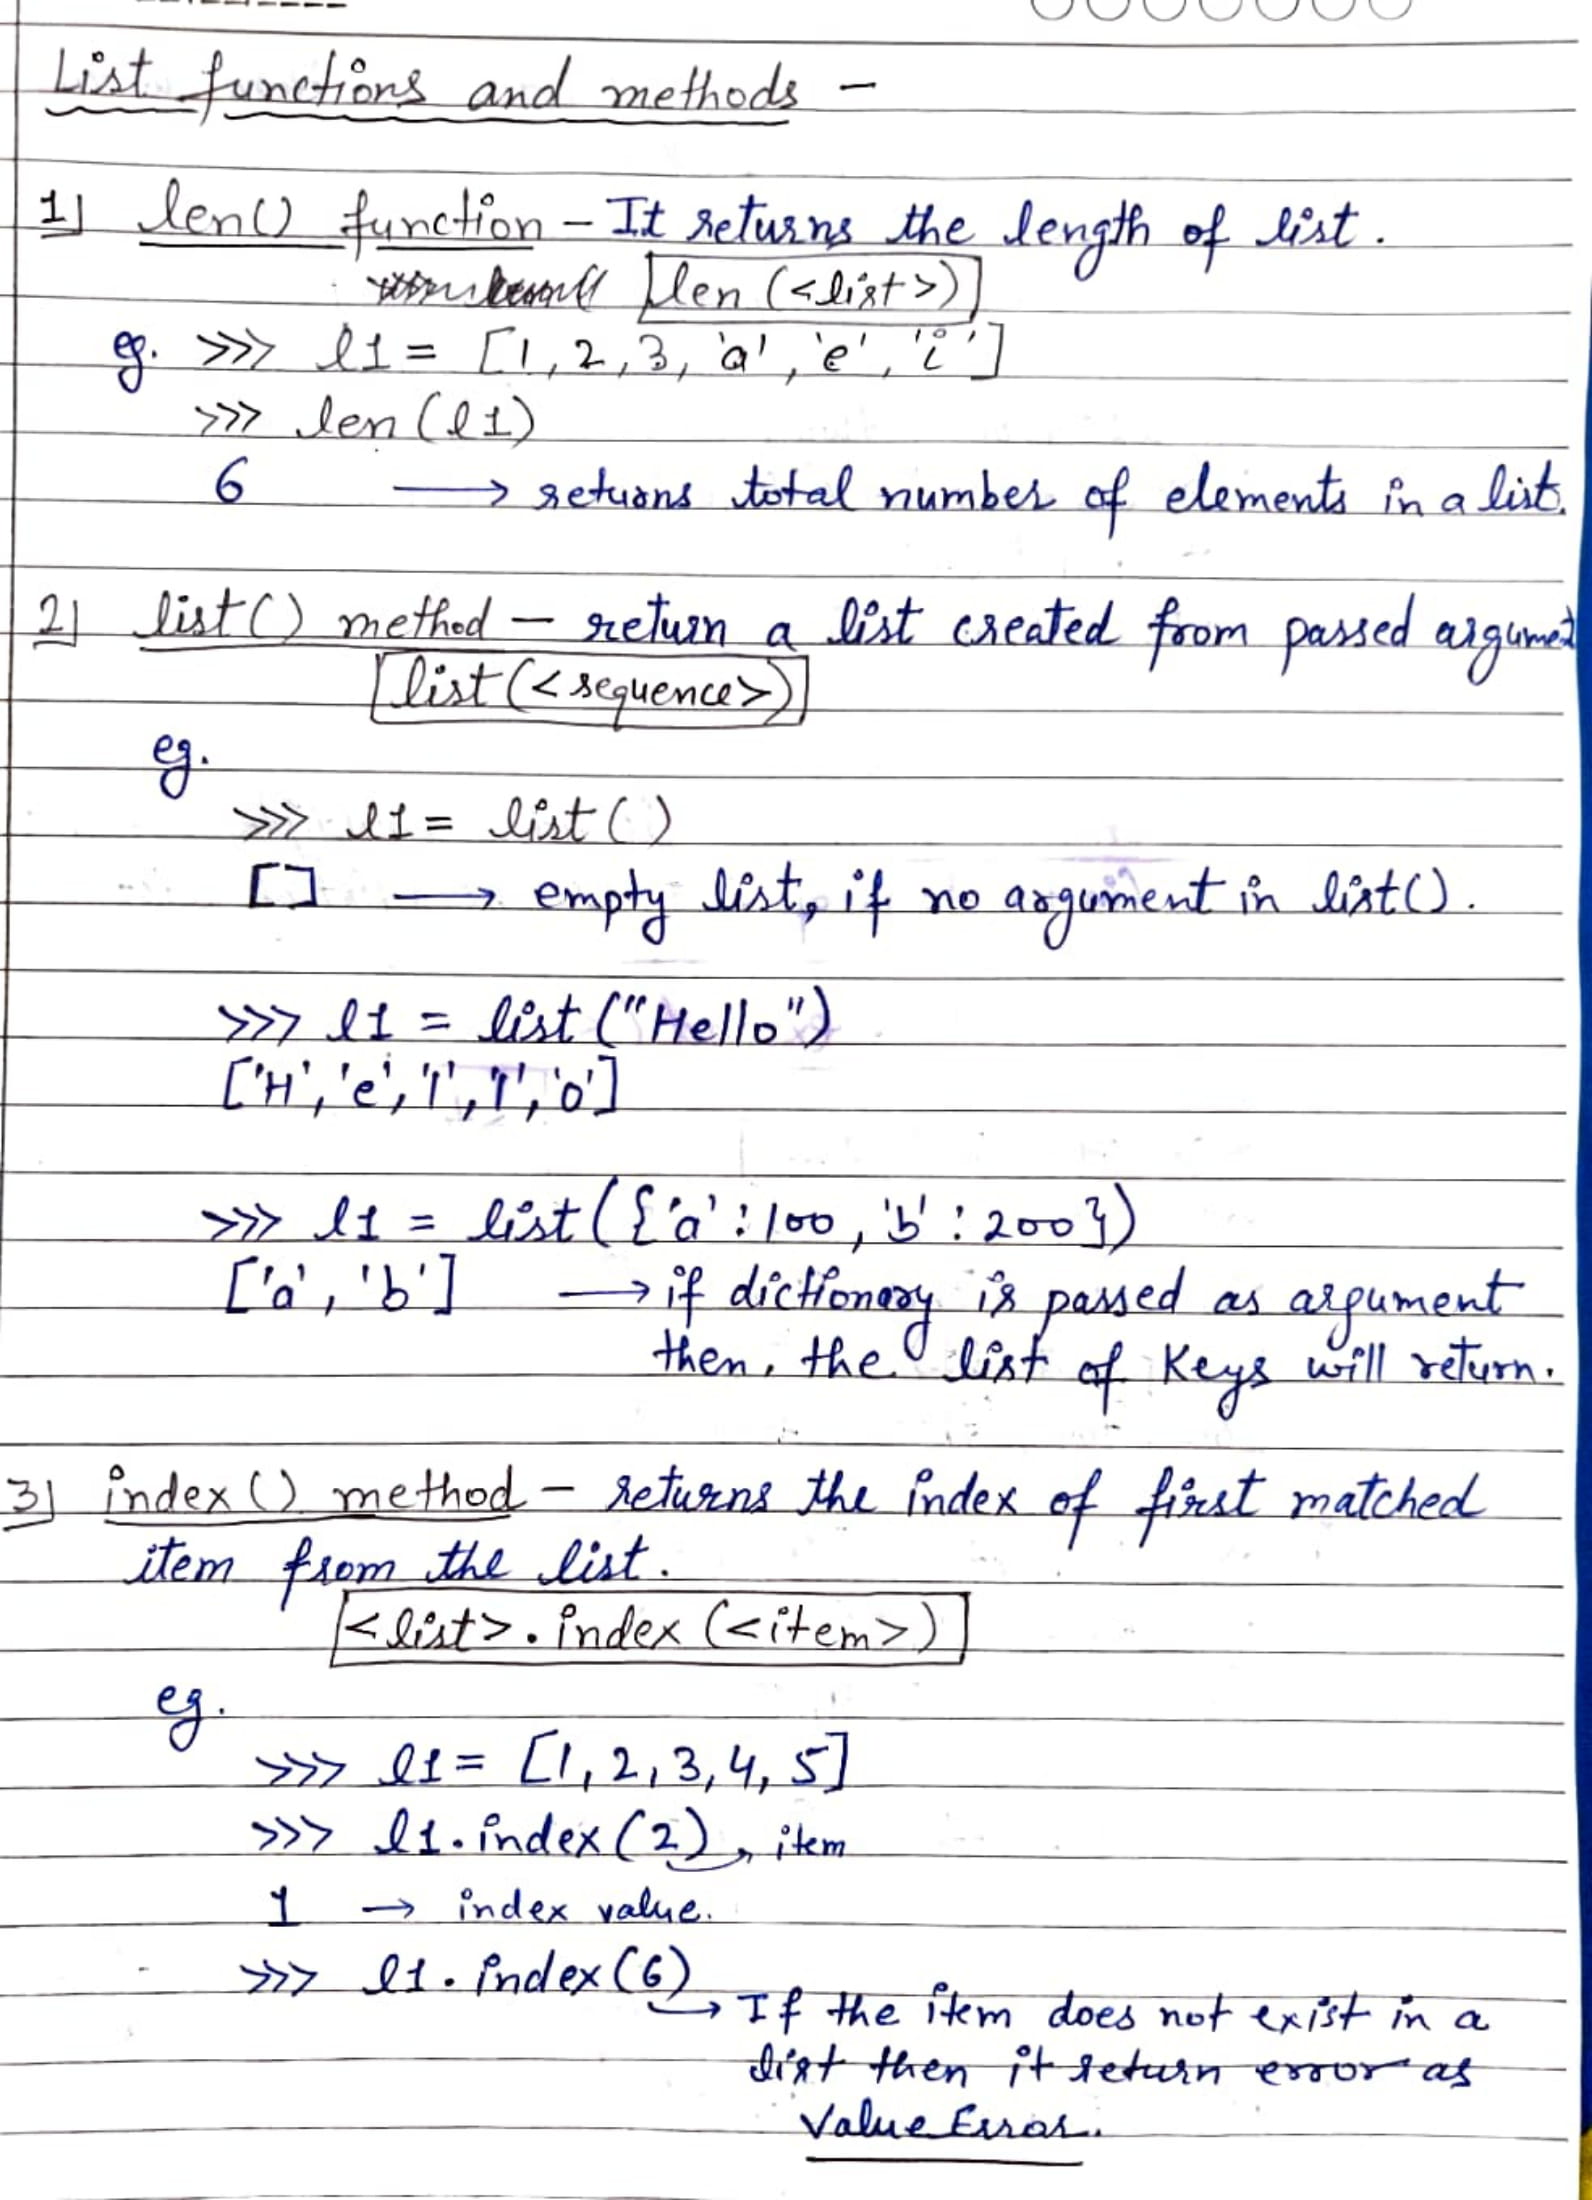 List functions and methods -
1] len() function - It returns the length of list.
len (<list>)
eg. >>> l1 = [1, 2, 3, 'a', 'e', 'i']
>>> len (l1)
6 → returns total number of elements in a list.
2] list() method - return a list created from passed argument
list (<sequence>)
eg.
>>> l1 = list ()
[] → empty list, if no argument in list().
>>> l1 = list ("Hello")
['H', 'e', 'l', 'l', 'o']
>>> l1 = list ({'a' : 100, 'b' : 200})
['a', 'b'] → if dictionary is passed as argument
then, the list of Keys will return.
3] index () method - returns the index of first matched
item from the list.
<list>. index (<item>)
eg.
>>> l1 = [1, 2, 3, 4, 5]
>>> l1. index (2) → item
1 → index value.
>>> l1. index (6)
→ If the item does not exist in a
list then it return error as
Value Error.